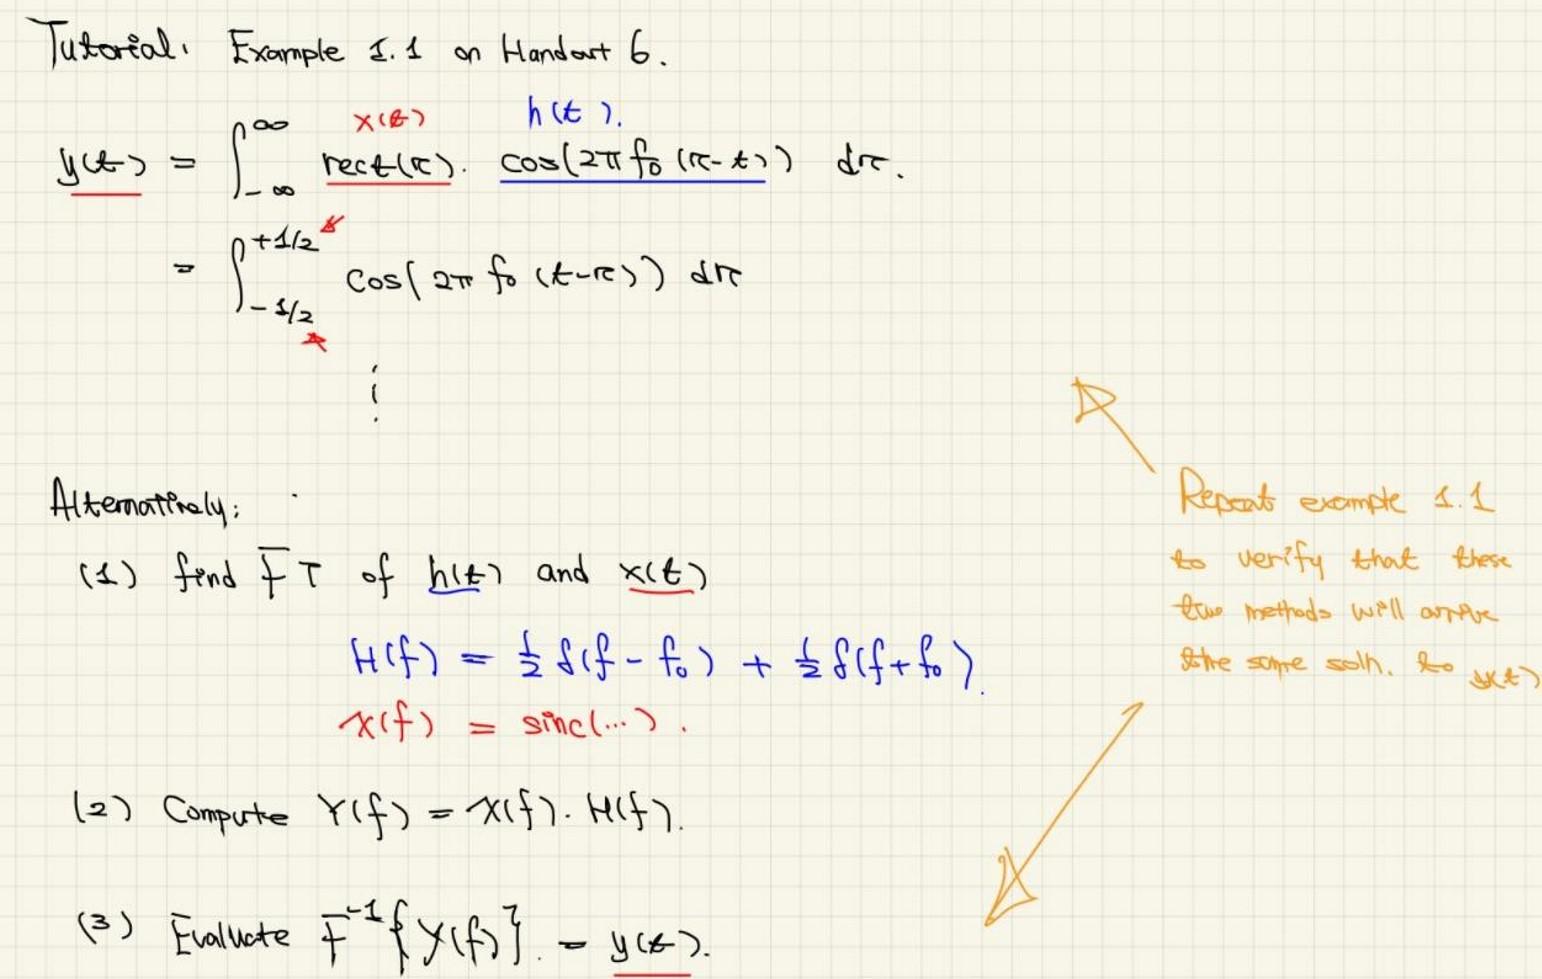 Tutorial. Example 1.1 on Handout 6.
x(t) h(t).
y(t) = ∫_{-∞}^{∞} rect(τ). cos(2π f₀ (τ-t)) dτ.
= ∫_{-1/2}^{+1/2} cos(2π f₀ (t-τ)) dτ
⋮
Alternatively:
(1) find FT of h(t) and x(t)
H(f) = 1/2 δ(f - f₀) + 1/2 δ(f + f₀).
X(f) = sinc(...).
(2) Compute Y(f) = X(f). H(f).
(3) Evaluate F⁻¹{Y(f)}. = y(t).
Repeat example 1.1
to verify that these
two methods will arrive
the same soln. to y(t)